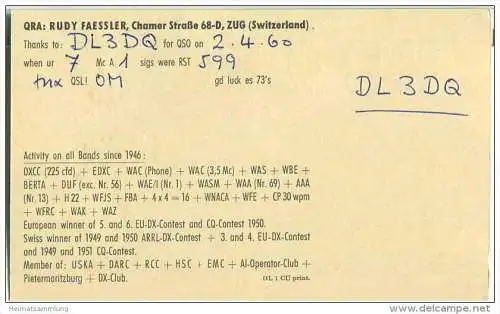 QRA: RUDY FAESSLER, Chamer Straße 68-D, ZUG (Switzerland).
Thanks to: DL3DQ for QSO on 2.4.60
when ur 7 Mc A 1 sigs were RST 599
tnx QSL! OM gd luck es 73's
DL3DQ
Activity on all Bands since 1946:
DXCC (225 cfd) + EDXC + WAC (Phone) + WAC (3,5 Mc) + WAS + WBE +
BERTA + DUF (exc. Nr. 56) + WAE/I (Nr. 1) + WASM + WAA (Nr. 69) + AAA
(Nr. 13) + H 22 + WFJS + FBA + 4 x 4 = 16 + WNACA + WFE + CP 30 wpm
+ WFRC + WAK + WAZ
European winner of 5. and 6. EU-DX-Contest and CQ-Contest 1950.
Swiss winner of 1949 and 1950 ARRL-DX-Contest + 3. and 4. EU-DX-Contest
and 1949 and 1951 CQ-Contest.
Member of: USKA + DARC + RCC + HSC + EMC + AI-Operator-Club +
Pietermaritzburg + DX-Club. DL 1 CU print.
Heimatsammlung
delcampe.net